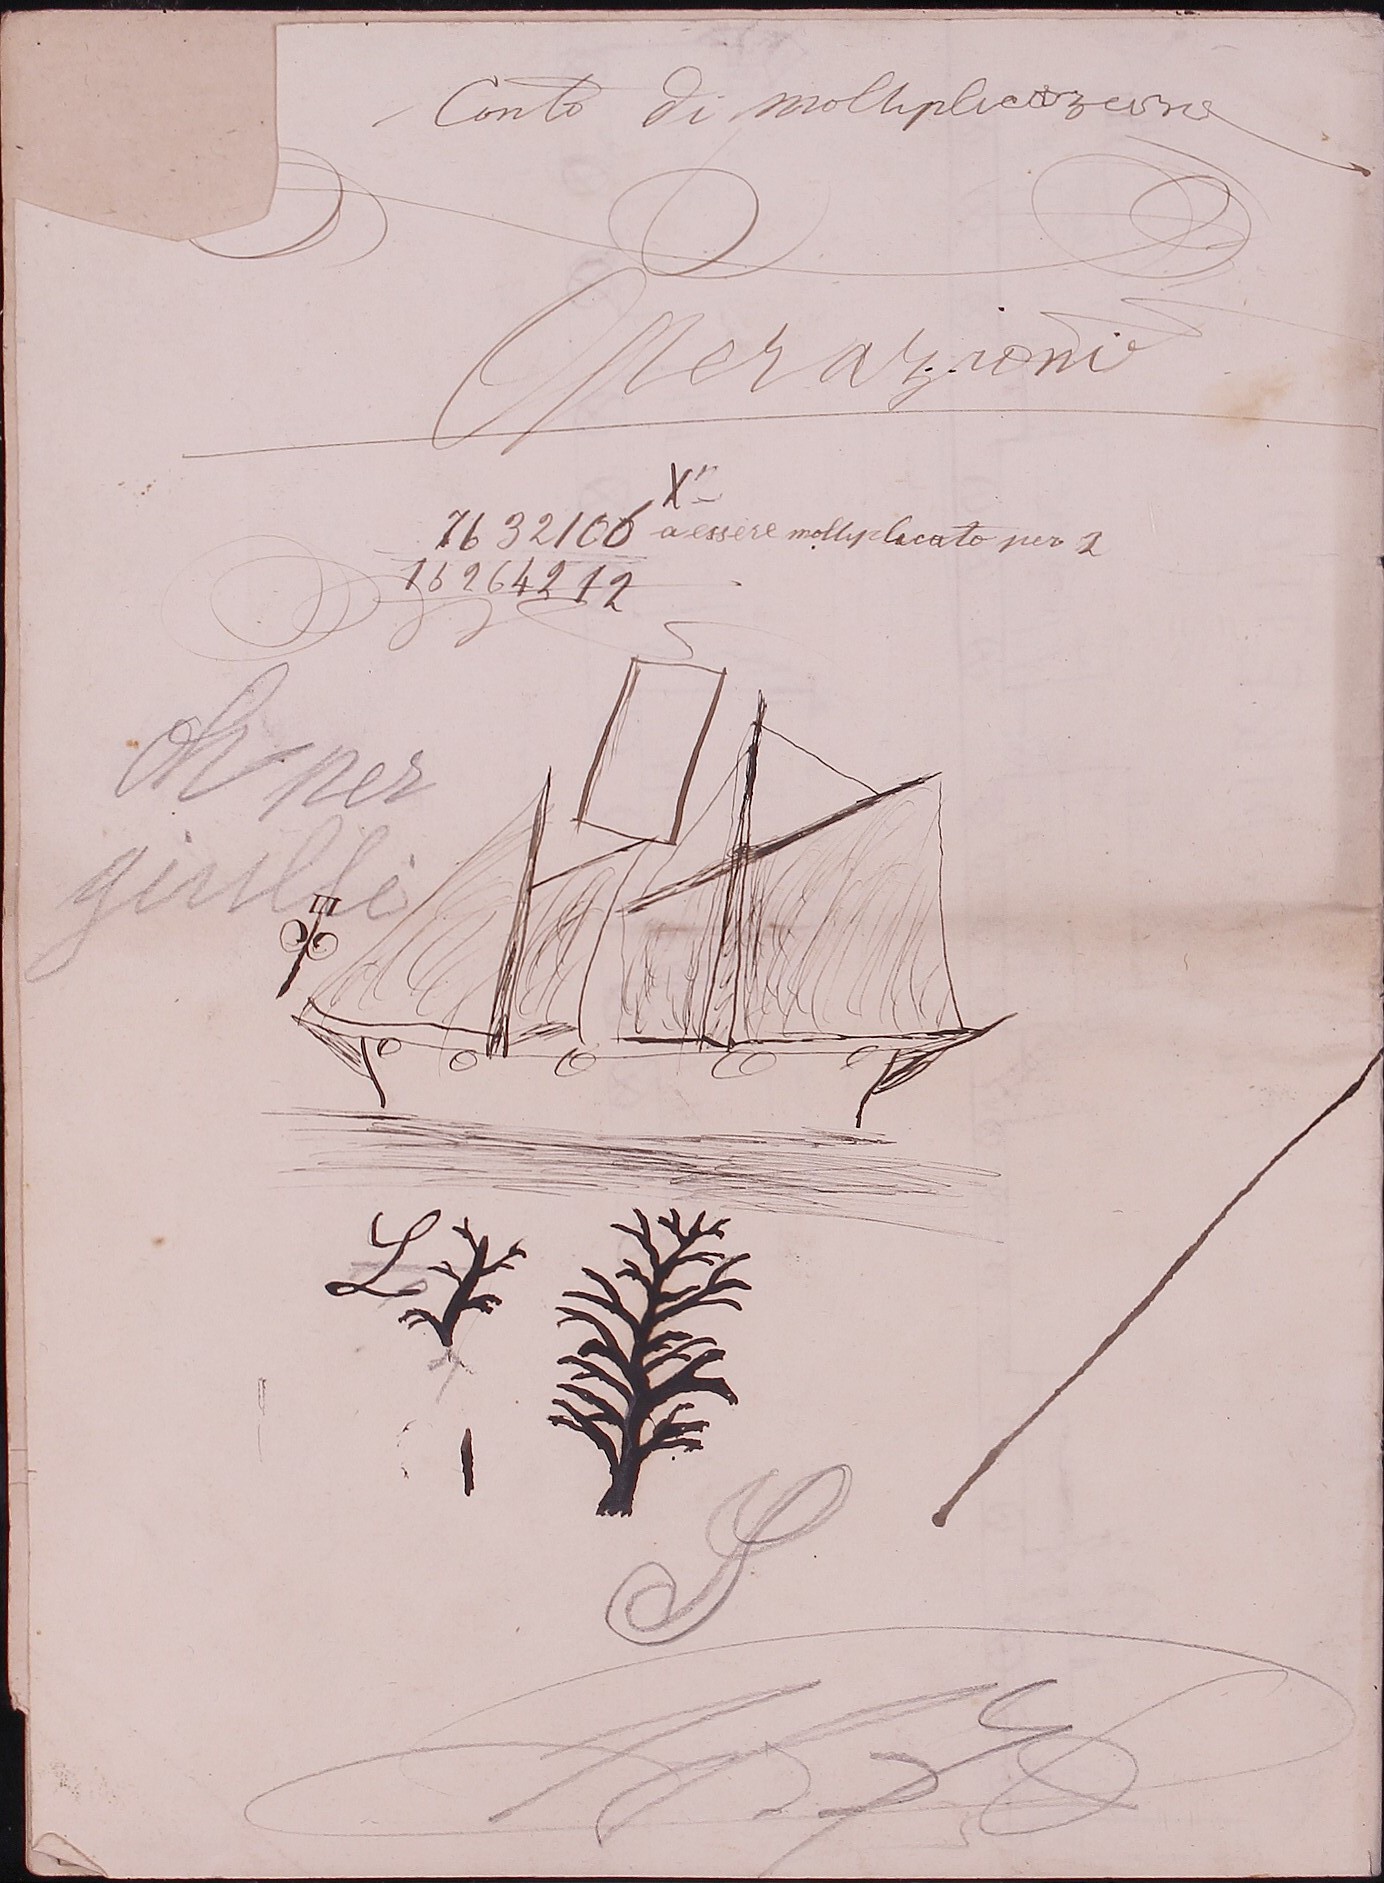 Conto di moltiplicazione
Operazioni
Xn
7632106 a essere moltiplicato per 2
16264212
oh per
L
S